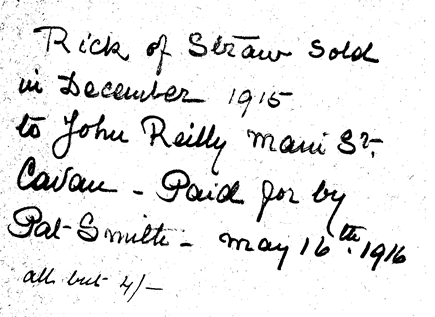 Rick of Straw sold
in December 1915
to John Reilly Main St.
Cavan - Paid for by
Pat Smith - May 16th. 1916
all but 4/-